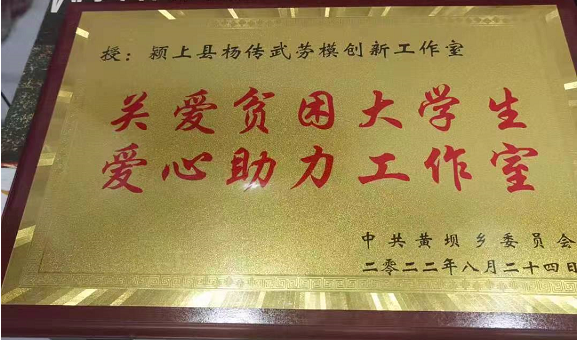 授：颍上县杨传武劳模创新工作室
关爱贫困大学生
爱心助力工作室
中共黄坝乡委员会
二零二二年八月二十四日